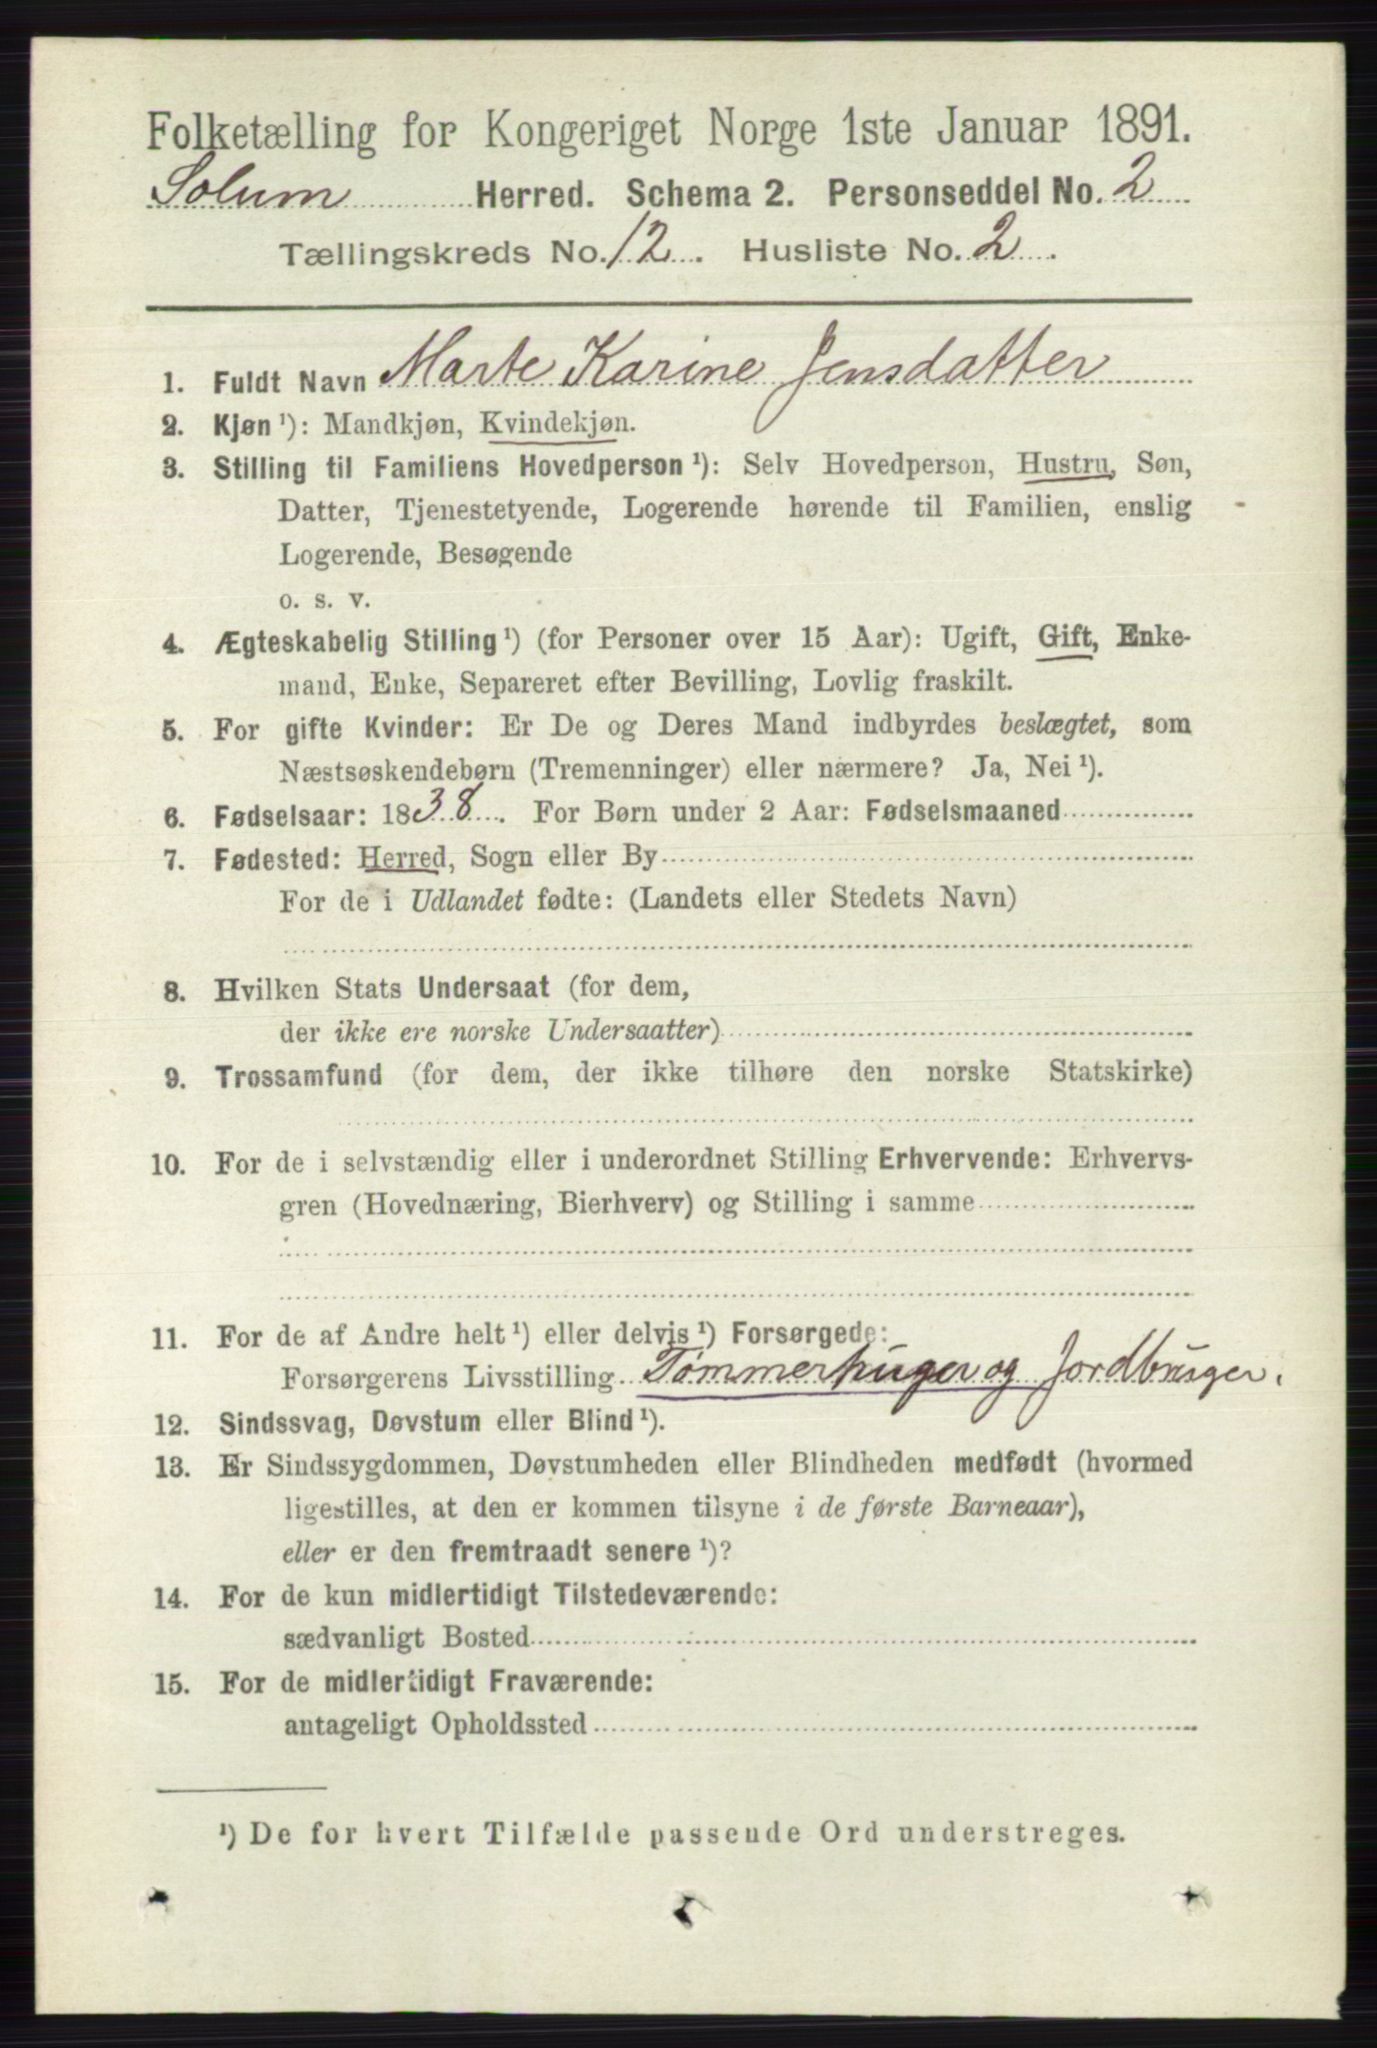 Folketælling for Kongeriget Norge 1ste Januar 1891.
Solum Herred. Schema 2. Personseddel No. 2
Tællingskreds No. 12. Husliste No. 2.
1. Fuldt Navn Marte Karine Jensdatter
2. Kjøn ¹): Mandkjøn, Kvindekjøn.
3. Stilling til Familiens Hovedperson ¹): Selv Hovedperson, Hustru, Søn,
Datter, Tjenestetyende, Logerende hørende til Familien, enslig
Logerende, Besøgende
o. s. v.
4. Ægteskabelig Stilling ¹) (for Personer over 15 Aar): Ugift, Gift, Enke-
mand, Enke, Separeret efter Bevilling, Lovlig fraskilt.
5. For gifte Kvinder: Er De og Deres Mand indbyrdes beslægtet, som
Næstsøskendebørn (Tremenninger) eller nærmere? Ja, Nei ¹).
6. Fødselsaar: 1838. For Børn under 2 Aar: Fødselsmaaned
7. Fødested: Herred, Sogn eller By
For de i Udlandet fødte: (Landets eller Stedets Navn)
8. Hvilken Stats Undersaat (for dem,
der ikke ere norske Undersaatter)
9. Trossamfund (for dem, der ikke tilhøre den norske Statskirke)
10. For de i selvstændig eller i underordnet Stilling Erhvervende: Erhvervs-
gren (Hovednæring, Bierhverv) og Stilling i samme
11. For de af Andre helt ¹) eller delvis ¹) Forsørgede:
Forsørgerens Livsstilling Tømmerhuger og Jordbruger.
12. Sindssvag, Døvstum eller Blind ¹).
13. Er Sindssygdommen, Døvstumheden eller Blindheden medfødt (hvormed
ligestilles, at den er kommen tilsyne i de første Barneaar),
eller er den fremtraadt senere ¹)?
14. For de kun midlertidigt Tilstedeværende:
sædvanligt Bosted
15. For de midlertidigt Fraværende:
antageligt Opholdssted
¹) De for hvert Tilfælde passende Ord understreges.